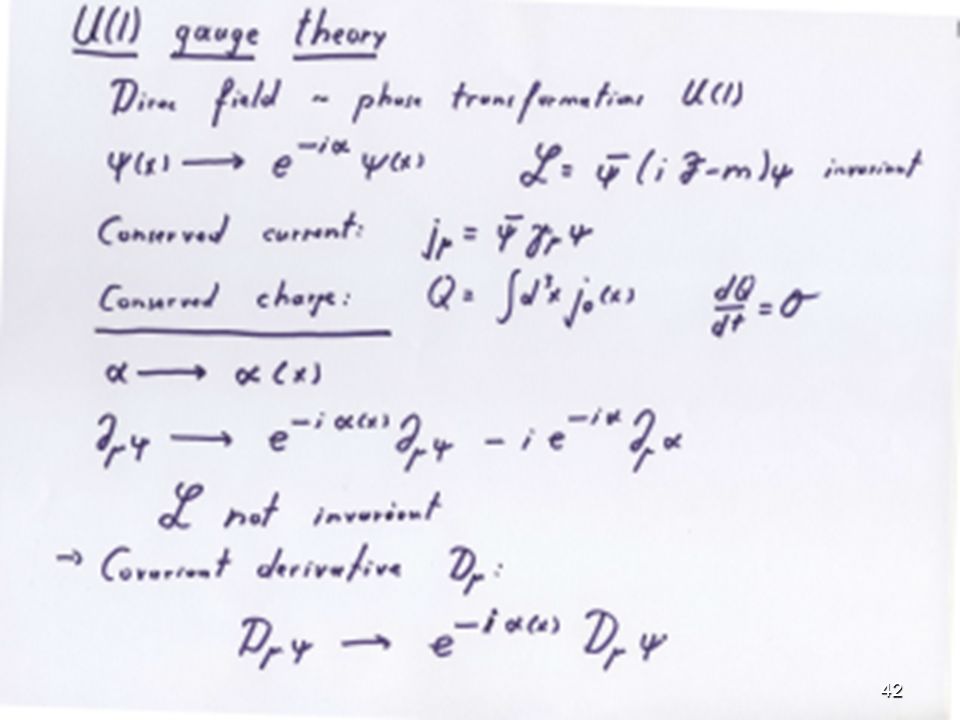 U(1) gauge theory
Dirac field ~ phase transformations U(1)
ψ(x) ⟶ e^{-iα} ψ(x) ℒ = ψ̄ (i ∂̸ - m) ψ invariant
Conserved current: j_μ = ψ̄ γ_μ ψ
Conserved charge: Q = ∫d³x j₀(x) dQ/dt = 0
α ⟶ α(x)
∂_μ ψ ⟶ e^{-iα(x)} ∂_μ ψ - i e^{-iα} ∂_μ α
ℒ not invariant
→ Covariant derivative D_μ:
D_μ ψ ⟶ e^{-iα(x)} D_μ ψ
42